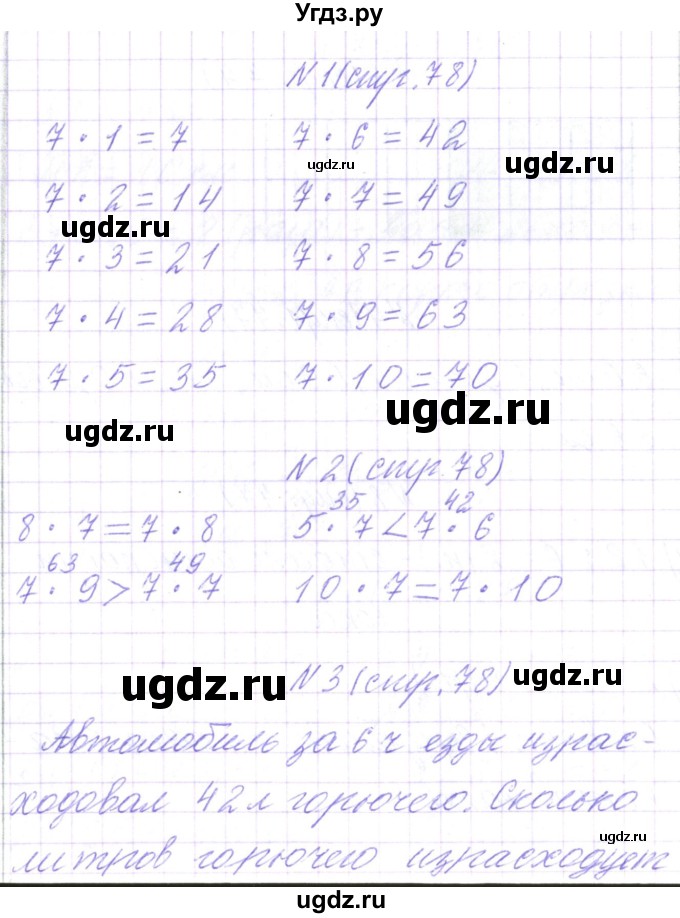 Угдз.ру
N 1 (стр. 78)
7 · 1 = 7 7 · 6 = 42
ugdz.ru ugdz.ru
7 · 2 = 14 7 · 7 = 49
ugdz.ru
7 · 3 = 21 7 · 8 = 56
7 · 4 = 28 7 · 9 = 63
7 · 5 = 35 7 · 10 = 70
ugdz.ru
ugdz.ru
N 2 (стр. 78)
35 42
8 · 7 = 7 · 8 5 · 7 < 7 · 6
63 49
7 · 9 > 7 · 7 10 · 7 = 7 · 10
ugdz.ru N 3 (стр. 78) ugdz.ru
Автомобиль за 6 ч езды израс-
ходовал 42 л горючего. Сколько
ugdz.ru
литров горючего израсходует
ugdz.ru